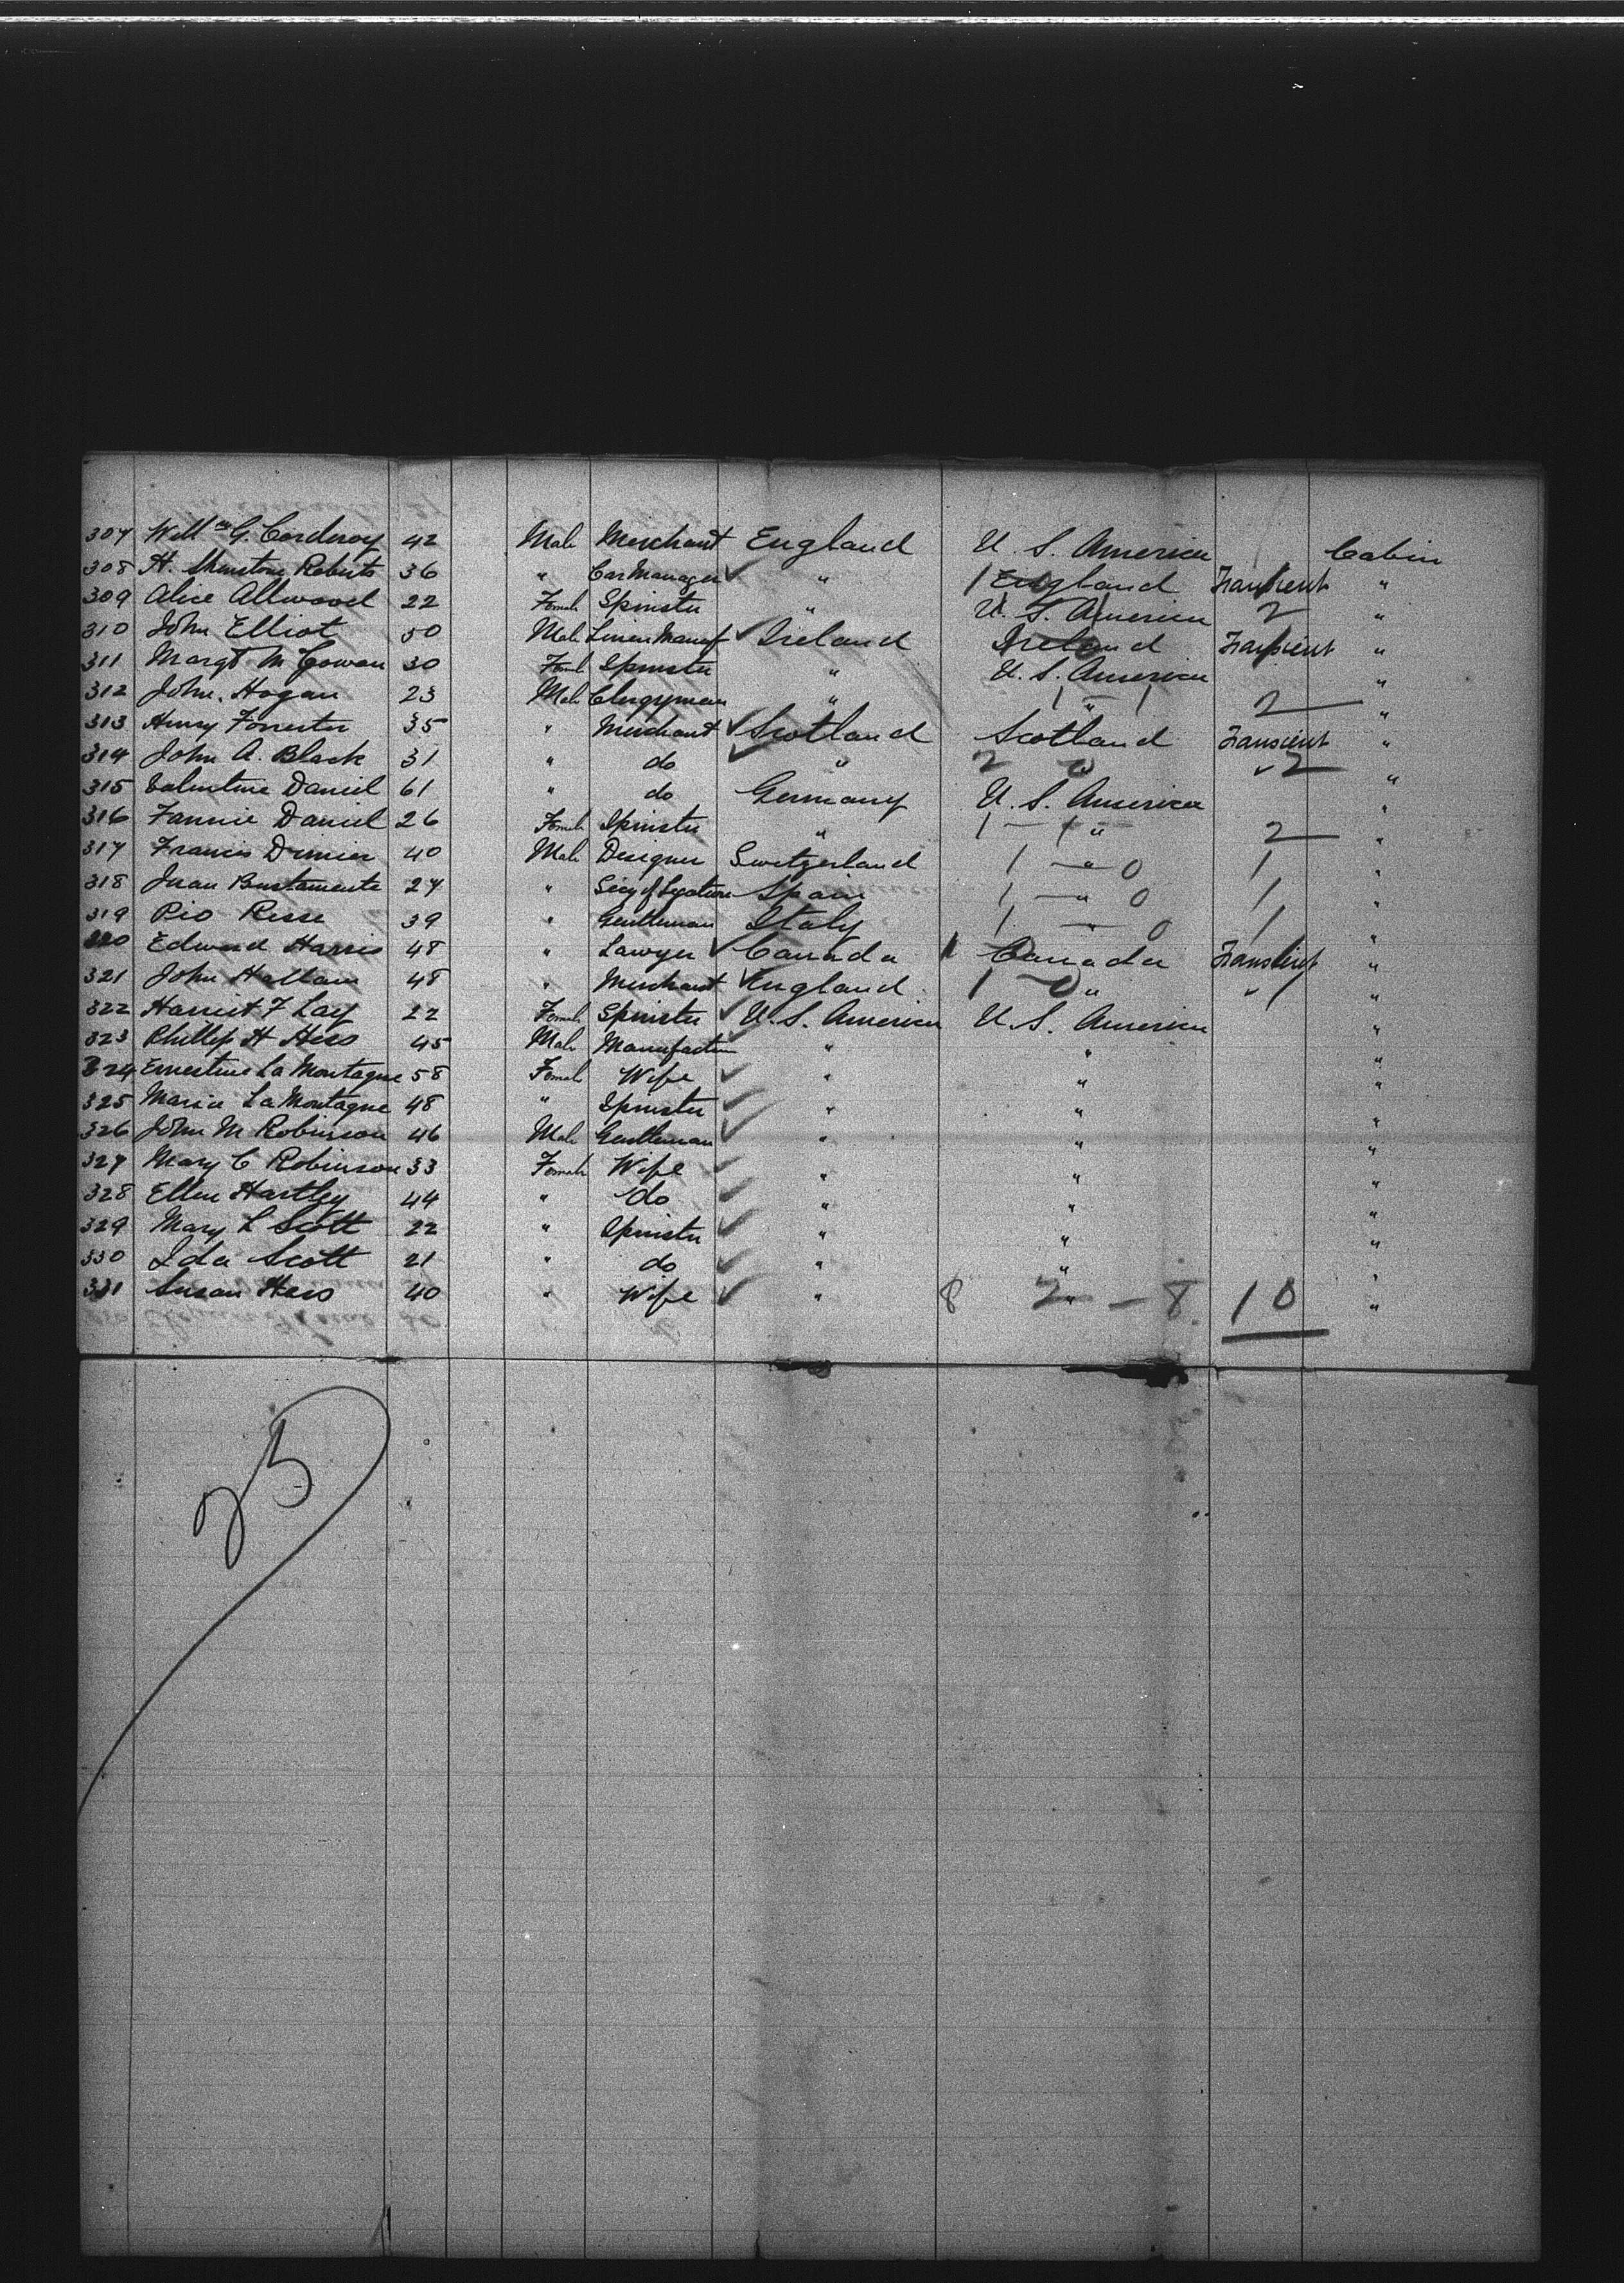 307 Willm G. Corderoy 42 Male Merchant England U. S. America Cabin
308 H. Shenstone Roberts 36 " Car Manager " 1 England Transient "
309 Alice Allwood 22 Female Spinster " U. S. America 2 "
310 John Elliot 50 Male Linen Manuf Ireland Ireland Transient "
311 Margt McGowan 30 Feml Spinster " U. S. America "
312 John Hogan 23 Male Clergyman " 1 " 1 2 "
313 Henry Forrester 35 " Merchant Scotland Scotland Transient "
314 John A. Black 31 " do " 2 0 " 2 "
315 Valentine Daniel 61 " do Germany U. S. America "
316 Fannie Daniel 26 Female Spinster " 1 - 1 " 2 "
317 Francis 40 Male Designer Switzerland 1 - " 0 1 "
318 Juan Bustamente 27 " Secy of Legation Spain 1 - " 0 1 "
319 Pio Risse 39 " Gentleman Italy 1 - " 0 1 "
320 Edward Harris 48 " Lawyer Canada 1 Canada Transient "
321 John Hallam 48 " Merchant England 1 - 0 " " 1 "
322 Harriet F Lay 22 Female Spinster U. S. America U. S. America "
323 Phillip H Hess 45 Male Manufactur " " "
324 Ernestine La Montagne 58 Female Wife " " "
325 Maria La Montagne 48 " Spinster " " "
326 John M Robinson 46 Male Gentleman " " "
327 Mary C Robinson 33 Female Wife " " "
328 Ellen Hartley 44 " do " " "
329 Mary L Scott 22 " Spinster " " "
330 Ida Scott 21 " do " " "
331 Susan Hess 40 " Wife " 8 2 " - 8 10 "
25